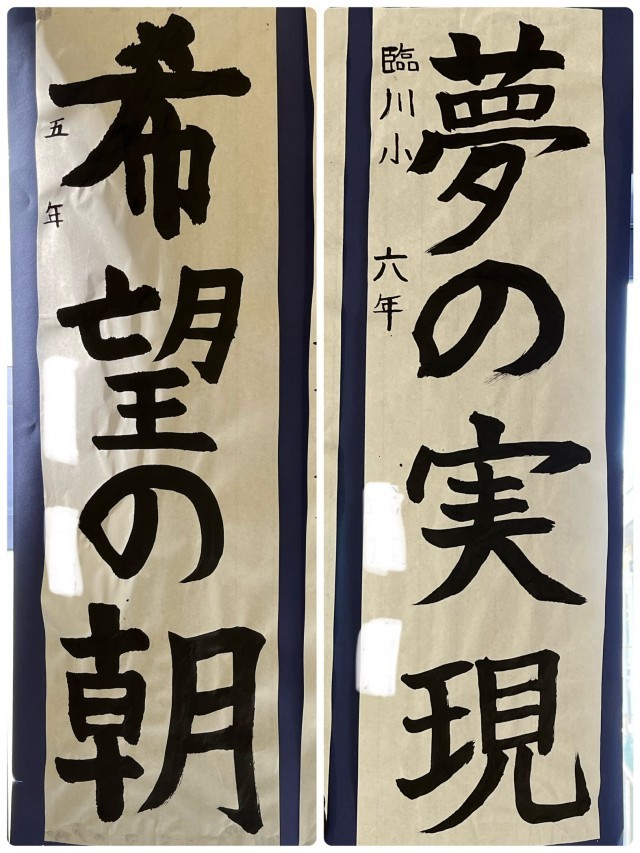 希望の朝
五年
夢の実現
臨川小 六年